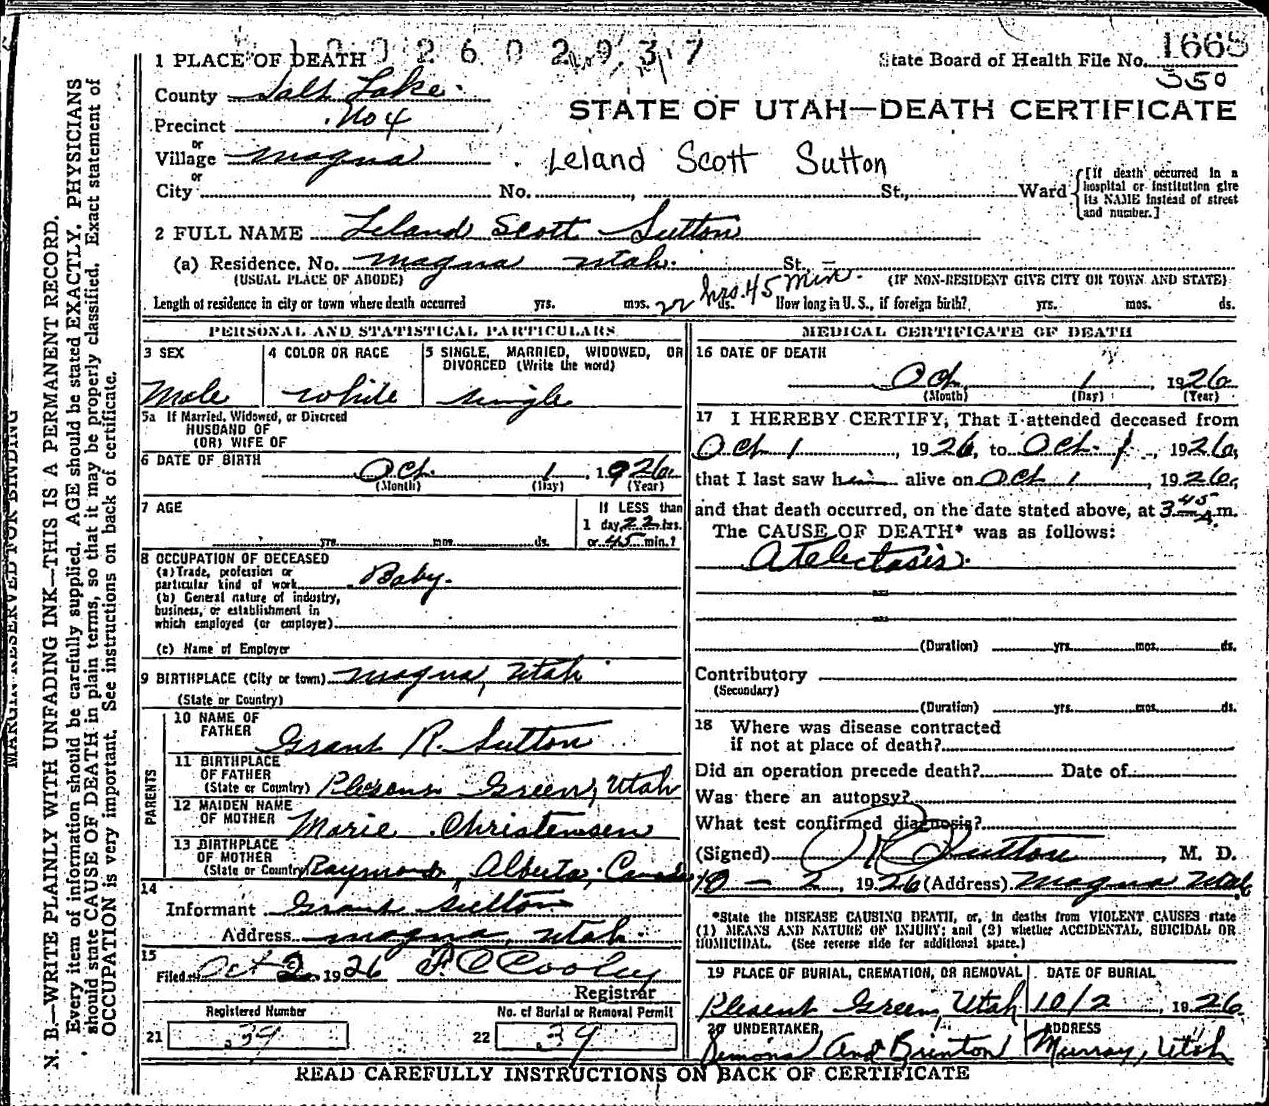 1002602937
1 PLACE OF DEATH
State Board of Health File No. 1668
350
County Salt Lake
STATE OF UTAH—DEATH CERTIFICATE
Precinct No 4
or
Village Magna
Leland Scott Sutton
or
City No. St., Ward
[If death occurred in a hospital or institution give its NAME instead of street and number.]
2 FULL NAME Leland Scott Sutton
(a) Residence. No. Magna Utah. St.
(USUAL PLACE OF ABODE) (IF NON-RESIDENT GIVE CITY OR TOWN AND STATE)
Length of residence in city or town where death occurred yrs. mos. ds. 22 hrs. 45 Min. How long in U. S., if foreign birth? yrs. mos. ds.
PERSONAL AND STATISTICAL PARTICULARS
3 SEX
Male
4 COLOR OR RACE
White
5 SINGLE, MARRIED, WIDOWED, OR DIVORCED (Write the word)
single
5a If Married, Widowed, or Divorced
HUSBAND OF
(OR) WIFE OF
6 DATE OF BIRTH
Oct. 1, 1926
(Month) (Day) (Year)
7 AGE
yrs. mos. ds.
If LESS than
1 day, 22 hrs.
or 45 min.?
8 OCCUPATION OF DECEASED
(a) Trade, profession or
particular kind of work Baby.
(b) General nature of industry,
business, or establishment in
which employed (or employer)
(c) Name of Employer
9 BIRTHPLACE (City or town) Magna, Utah
(State or Country)
PARENTS
10 NAME OF
FATHER Grant R. Sutton
11 BIRTHPLACE
OF FATHER
(State or Country) Plesent Green, Utah
12 MAIDEN NAME
OF MOTHER Marie Christensen
13 BIRTHPLACE
OF MOTHER
(State or Country) Raymond, Alberta, Canada
14
Informant Grant Sutton
Address Magna, Utah.
15
Filed Oct 2, 1926 F. C. Cooley
Registrar
Registered Number
21 39
No. of Burial or Removal Permit
22 39
MEDICAL CERTIFICATE OF DEATH
16 DATE OF DEATH
Oct. 1, 1926
(Month) (Day) (Year)
17 I HEREBY CERTIFY, That I attended deceased from
Oct 1, 1926, to Oct. 1, 1926,
that I last saw him alive on Oct 1, 1926,
and that death occurred, on the date stated above, at 3 45 A.m.
The CAUSE OF DEATH* was as follows:
Atelectasis.
(Duration) yrs. mos. ds.
Contributory
(Secondary)
(Duration) yrs. mos. ds.
18 Where was disease contracted
if not at place of death?
Did an operation precede death? Date of
Was there an autopsy?
What test confirmed diagnosis?
(Signed) Sutton, M. D.
10 – 2, 1926 (Address) Magna Utah
*State the DISEASE CAUSING DEATH, or, in deaths from VIOLENT CAUSES state
(1) MEANS AND NATURE OF INJURY; and (2) whether ACCIDENTAL, SUICIDAL OR
HOMICIDAL. (See reverse side for additional space.)
19 PLACE OF BURIAL, CREMATION, OR REMOVAL
Plesent Green, Utah
DATE OF BURIAL
10/2, 1926
20 UNDERTAKER
And Brinton
ADDRESS
Murray, Utah
READ CAREFULLY INSTRUCTIONS ON BACK OF CERTIFICATE
MARGIN RESERVED FOR BINDING
N. B.—WRITE PLAINLY WITH UNFADING INK—THIS IS A PERMANENT RECORD.
Every item of information should be carefully supplied. AGE should be stated EXACTLY. PHYSICIANS
should state CAUSE OF DEATH in plain terms, so that it may be properly classified. Exact statement of
OCCUPATION is very important. See instructions on back of certificate.